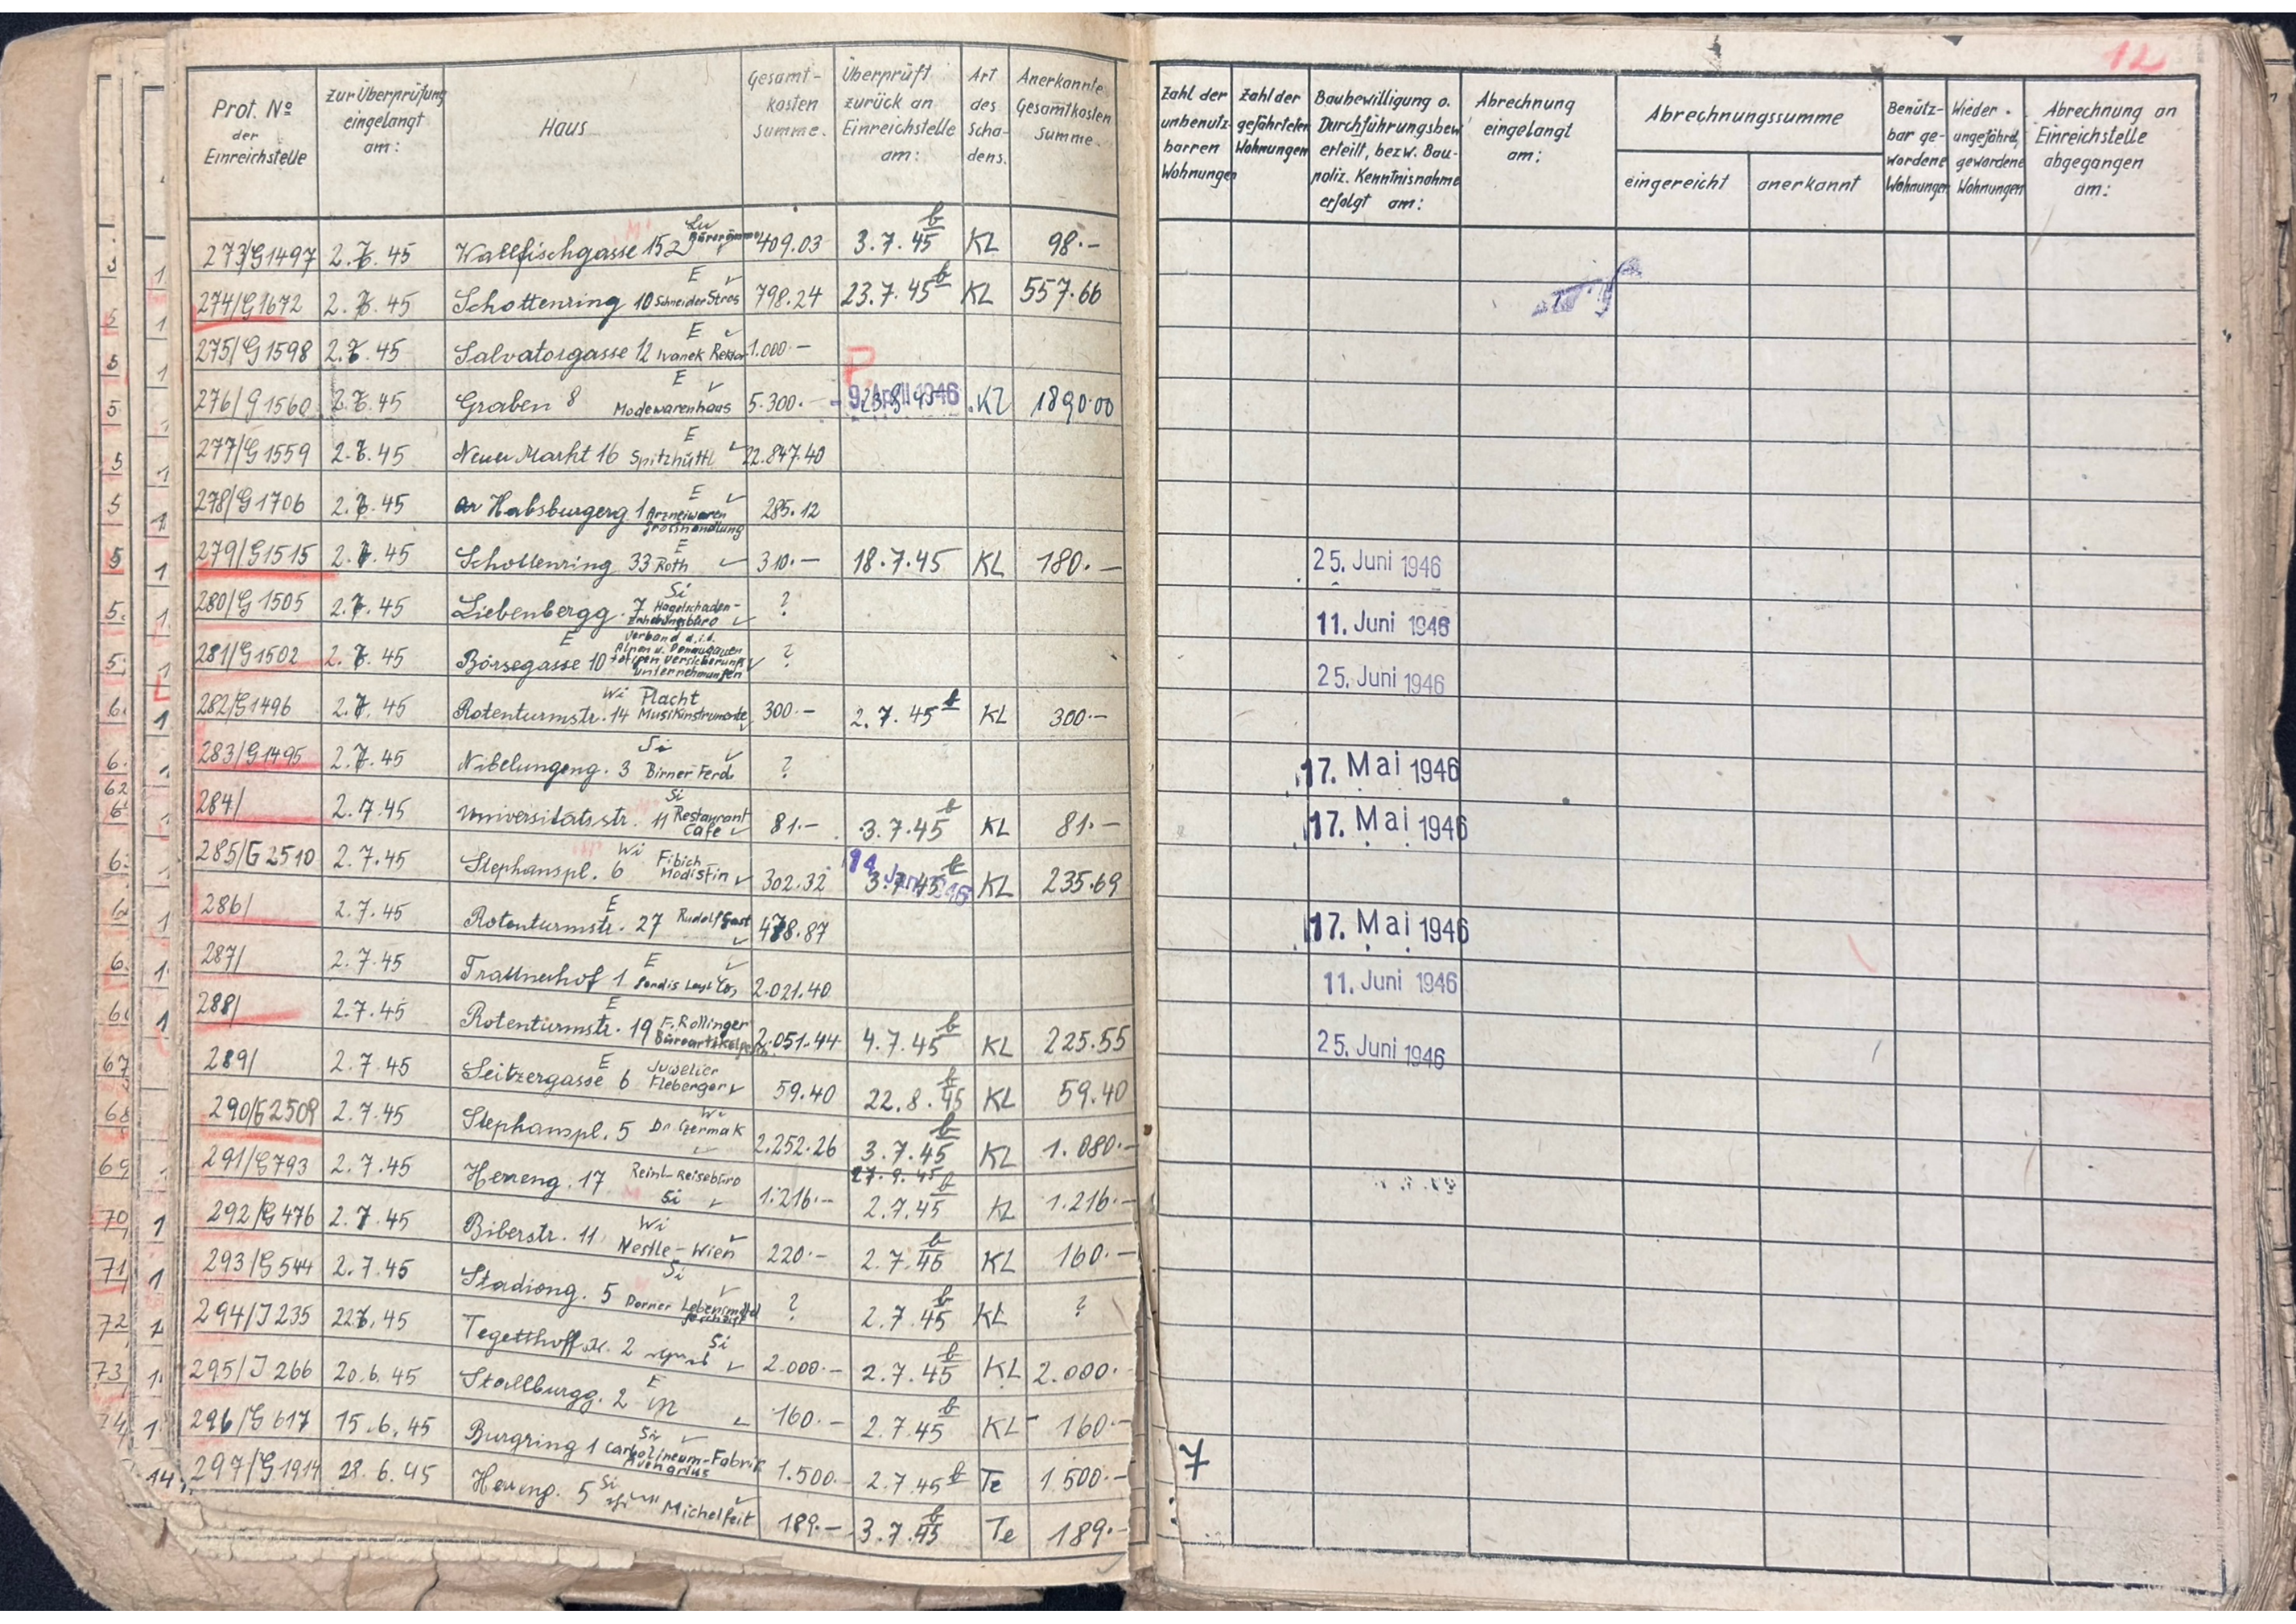 12
Prot. No der Einreichstelle
zur Überprüfung eingelangt am:
Haus
Gesamt-kosten summe.
Überprüft zurück an Einreichstelle am:
Art des Scha-dens.
Anerkannte Gesamtkosten summe.
Zahl der unbenutz-barren Wohnungen
Zahl der gefährteten Wohnungen
Baubewilligung o. Durchführungsbew. erteilt, bezw. Bau-poliz. Kenntnisnahme erfolgt am:
Abrechnung eingelangt am:
Abrechnungssumme
eingereicht
anerkannt
Benütz-bar ge-wordene Wohnungen
Wieder ungefährd. gewordene Wohnungen
Abrechnung an Einreichstelle abgegangen am:
273/G1497 2.7.45 Wallfischgasse 15 409.03 3.7.45 KL 98.-
274/G1672 2.7.45 Schottenring 10 E Schneider Stros 798.24 23.7.45 KL 557.66
275/G1598 2.7.45 Salvatorgasse 12 E Ivanek 1.000.-
276/G1560 2.7.45 Graben 8 E Modewarenhaus 5.300.- 9. April 1946 KL 1890.00
277/G1559 2.7.45 Neuer Markt 16 E Spitzhüttl 22.847.40
278/G1706 2.7.45 Habsburgerg. 1 E Arzneiwaren Grosshandlung 285.12
279/G1515 2.7.45 Schottenring 33 E Roth 310.- 18.7.45 KL 180.- 25. Juni 1946
280/G1505 2.7.45 Liebenbergg. 7 Si Hagelschaden-Erhebungsbüro ? 11. Juni 1946
281/G1502 2.7.45 Börsegasse 10 E Verband d. i. d. Alpen u. Donaugauen tätigen Versicherungs Unternehmungen ? 25. Juni 1946
282/G1496 2.7.45 Rotenturmstr. 14 Wi Placht Musikinstrumente 300.- 2.7.45 KL 300.-
283/G1495 2.7.45 Nibelungeng. 3 Si Birner Ferd. ? 17. Mai 1946
284/ 2.7.45 Universitätsstr. 11 Si Restaurant Cafe 81.- 3.7.45 KL 81.- 17. Mai 1946
285/G2510 2.7.45 Stephanspl. 6 Wi Fibich Modistin 302.32 3.7.45 KL 235.69
286/ 2.7.45 Rotenturmstr. 27 E Rudolf Gast 478.87 17. Mai 1946
287/ 2.7.45 Trattnerhof 1 E 2.021.40 11. Juni 1946
288/ 2.7.45 Rotenturmstr. 19 E F. Rollinger 2.051.44 4.7.45 KL 225.55 25. Juni 1946
289/ 2.7.45 Seitzergasse 6 E Juwelier Fleberger 59.40 22.8.45 KL 59.40
290/G2509 2.7.45 Stephanspl. 5 Wi Dr. Czermak 2.252.26 3.7.45 KL 1.080.-
291/G793 2.7.45 Herreng. 17 Reinl-Reisebüro Si 1.216.- 27.9.45 2.7.45 KL 1.216.-
292/G476 2.7.45 Biberstr. 11 Wi Nestle-Wien 220.- 2.7.45 KL 160.-
293/G544 2.7.45 Stadiong. 5 Si Dorner Lebensmittel ? 2.7.45 KL ?
294/J235 22.6.45 Tegetthoffstr. 2 Si 2.000.- 2.7.45 KL 2.000.-
295/J266 20.6.45 Stallburgg. 2 E 160.- 2.7.45 KL 160.-
296/G617 15.6.45 Burgring 1 Si Carbolineum-Fabrik Avenarius 1.500.- 2.7.45 Te 1.500.- 7
297/G1914 28.6.45 Herreng. 5 Si Michelfeit 189.- 3.7.45 Te 189.-